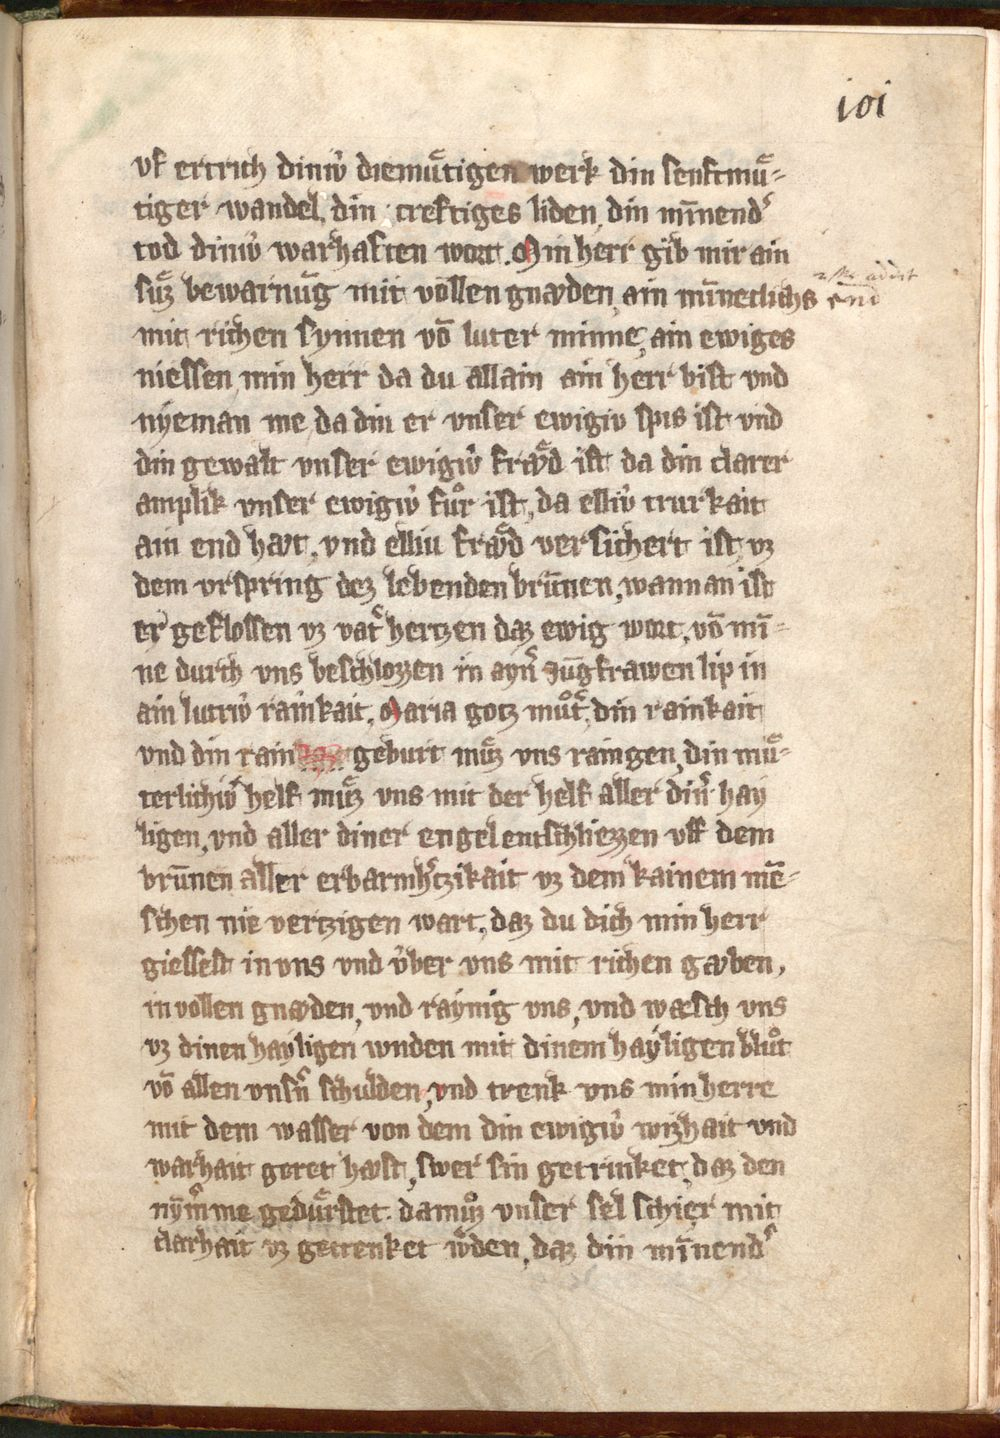 101
vf ertrich diniv̍ diemuͤtigen werk din senftmuͤ-
tiger wandel, din creftiges liden, din mīnend͛
tod diniv̍ warhaften wort. Min herr gib mir ain
suͤz bewarnūg mit vollen gnaden, ain mīneclichs end
mit richen synnen vō luter minne, ain ewiges
niessen min herr da du allain ain herr bist vnd
nyeman me, da din er vnser ewigiv spis ist vnd
din gewalt vnser ewigiv̍ fraͤd ist da din clarer
amplik vnser ewigiv̍ fuͦr ist, da elliv̍ trurkait
ain end hat, vnd elliu fraͤd versichert ist, vz
dem vrspring dez lebenden brūnen, wannan ist
er geflossen vz vat͛ hertzen daz ewig wort, vō mī-
ne durch vns beschlozzen in ayn͛ jūgfrawen lip in
ain lutriv̍ rainkait, Maria gotz muͦt͛, din rainkait
vnd din rain geburt muͤz vns raingen, din muͤ-
terlichiv̍ helf muͤz vns mit der helf aller din͛ hay
ligen, vnd aller diner engel entschliezzen vff dem
brūnen aller erbarmh͛tzikait vz dem kainem mē-
schen nie vertzigen wart, daz du dich min herr
giessest in vns vnd v̍ber vns mit richen gaben,
in vollen gnaden, vnd raynig vns, vnd wæsch vns
vz dinen hayligen wnden mit dinem hayligen bluͦt
vō allen vns͛n schulden, vnd trenk vns min herre
mit dem wasser von dem din ewigiv̍ wizhait vnd
warhait geret hast, swer sin getrinket, daz den
nym͛me geduͤrstet. da muͦz vnser sel schier mit
clarhait vz getrenket w͛den, daz din mīnend͛